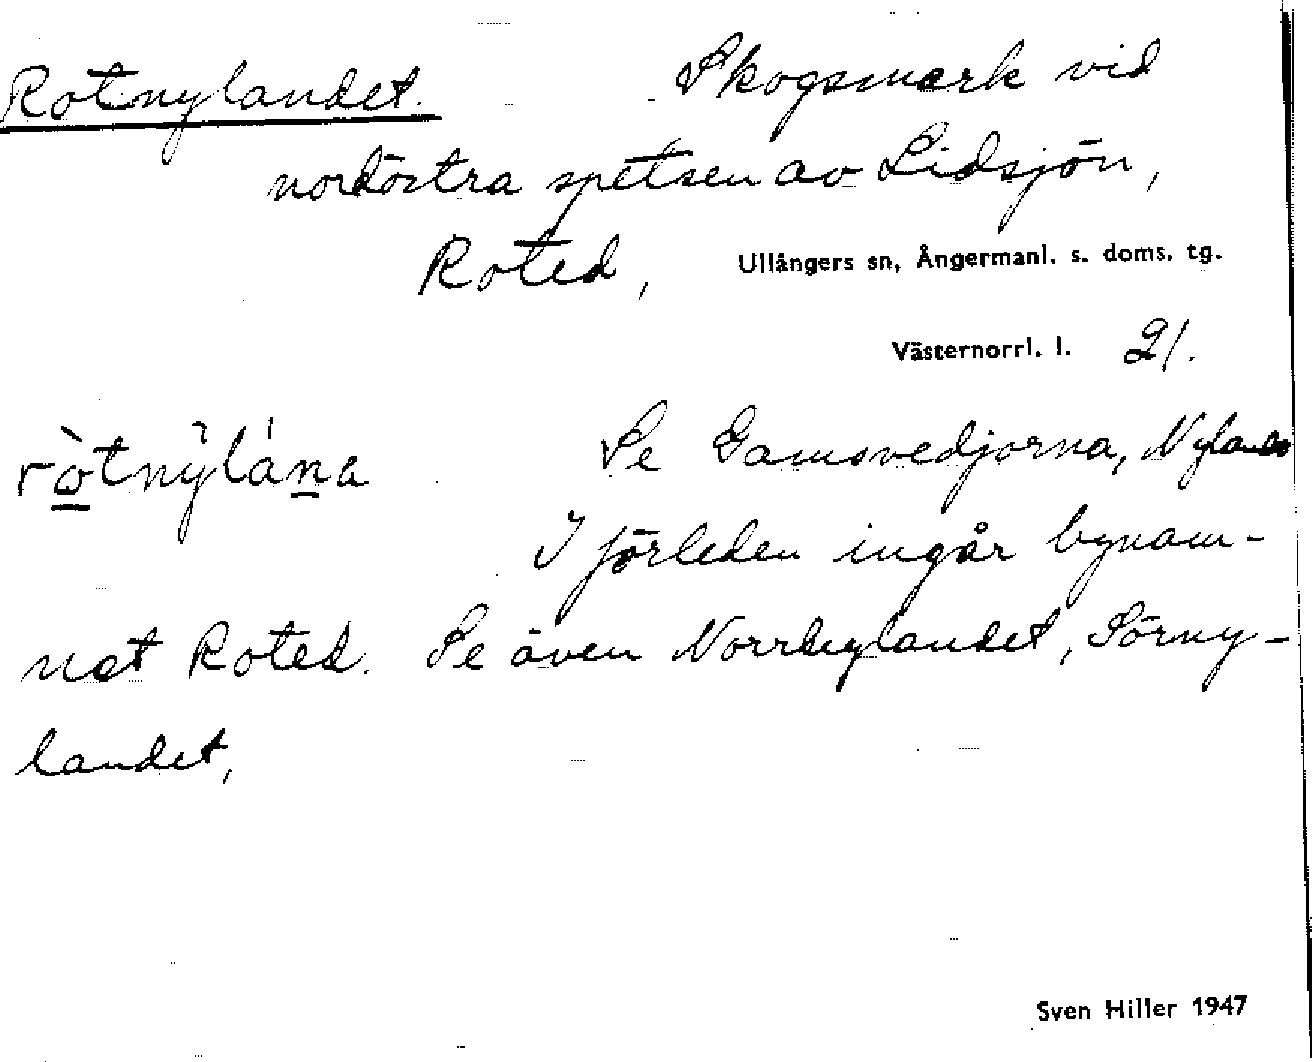 Rotnylandet. Skogsmark vid
nordöstra spetsen av Lidsjön,
Roted, Ullångers sn, Ångermanl. s. doms. tg.
Västernorrl. l. 21.
ròtnýlána Se Gamsvedjorna,
I förleden ingår bynam-
net Roted. Se även Norrbylandet, Sörny-
landet,
Sven Hiller 1947